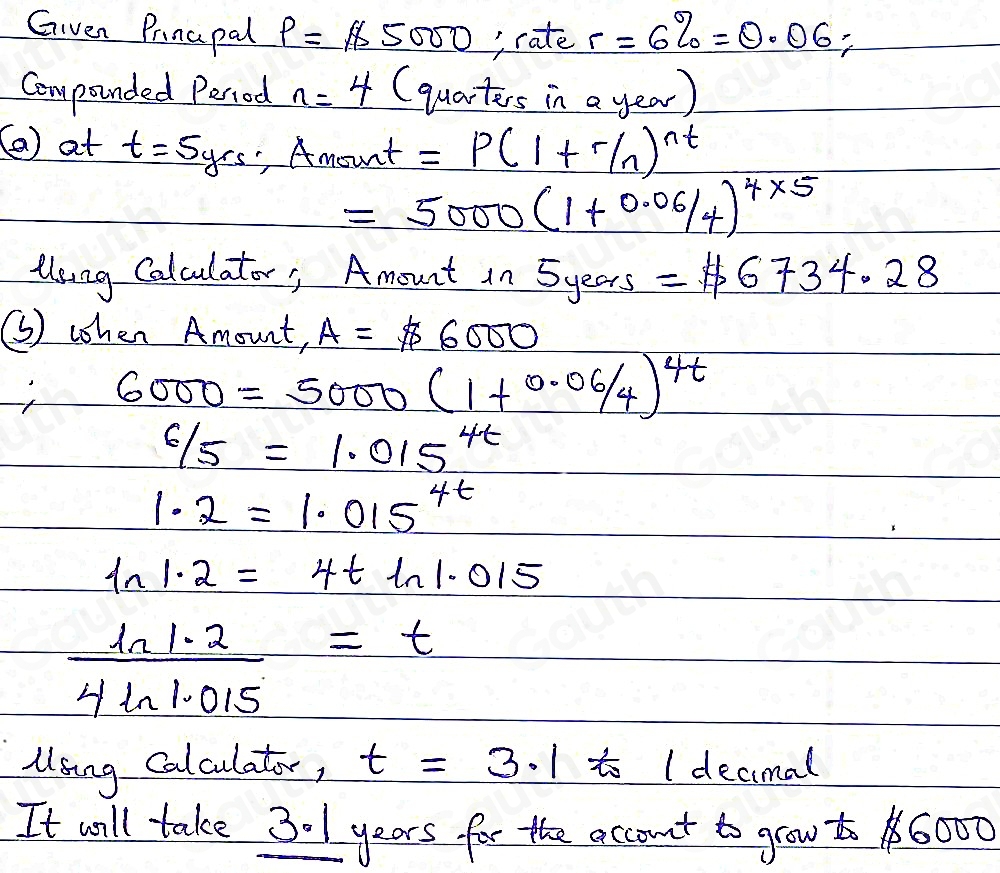 Given Principal P = $5000 ; rate r = 6% = 0.06;
Compounded Period n = 4 (quarters in a year)
(a) at t = 5yrs; Amount = P(1 + r/n)^nt
= 5000(1 + 0.06/4)^4×5
Using Calculator; Amount in 5years = $6734.28
(b) when Amount, A = $6000
; 6000 = 5000(1 + 0.06/4)^4t
6/5 = 1.015^4t
1.2 = 1.015^4t
ln 1.2 = 4t ln 1.015
ln 1.2 / 4 ln 1.015 = t
Using Calculator, t = 3.1 to 1 decimal
It will take 3.1 years for the account to grow to $6000